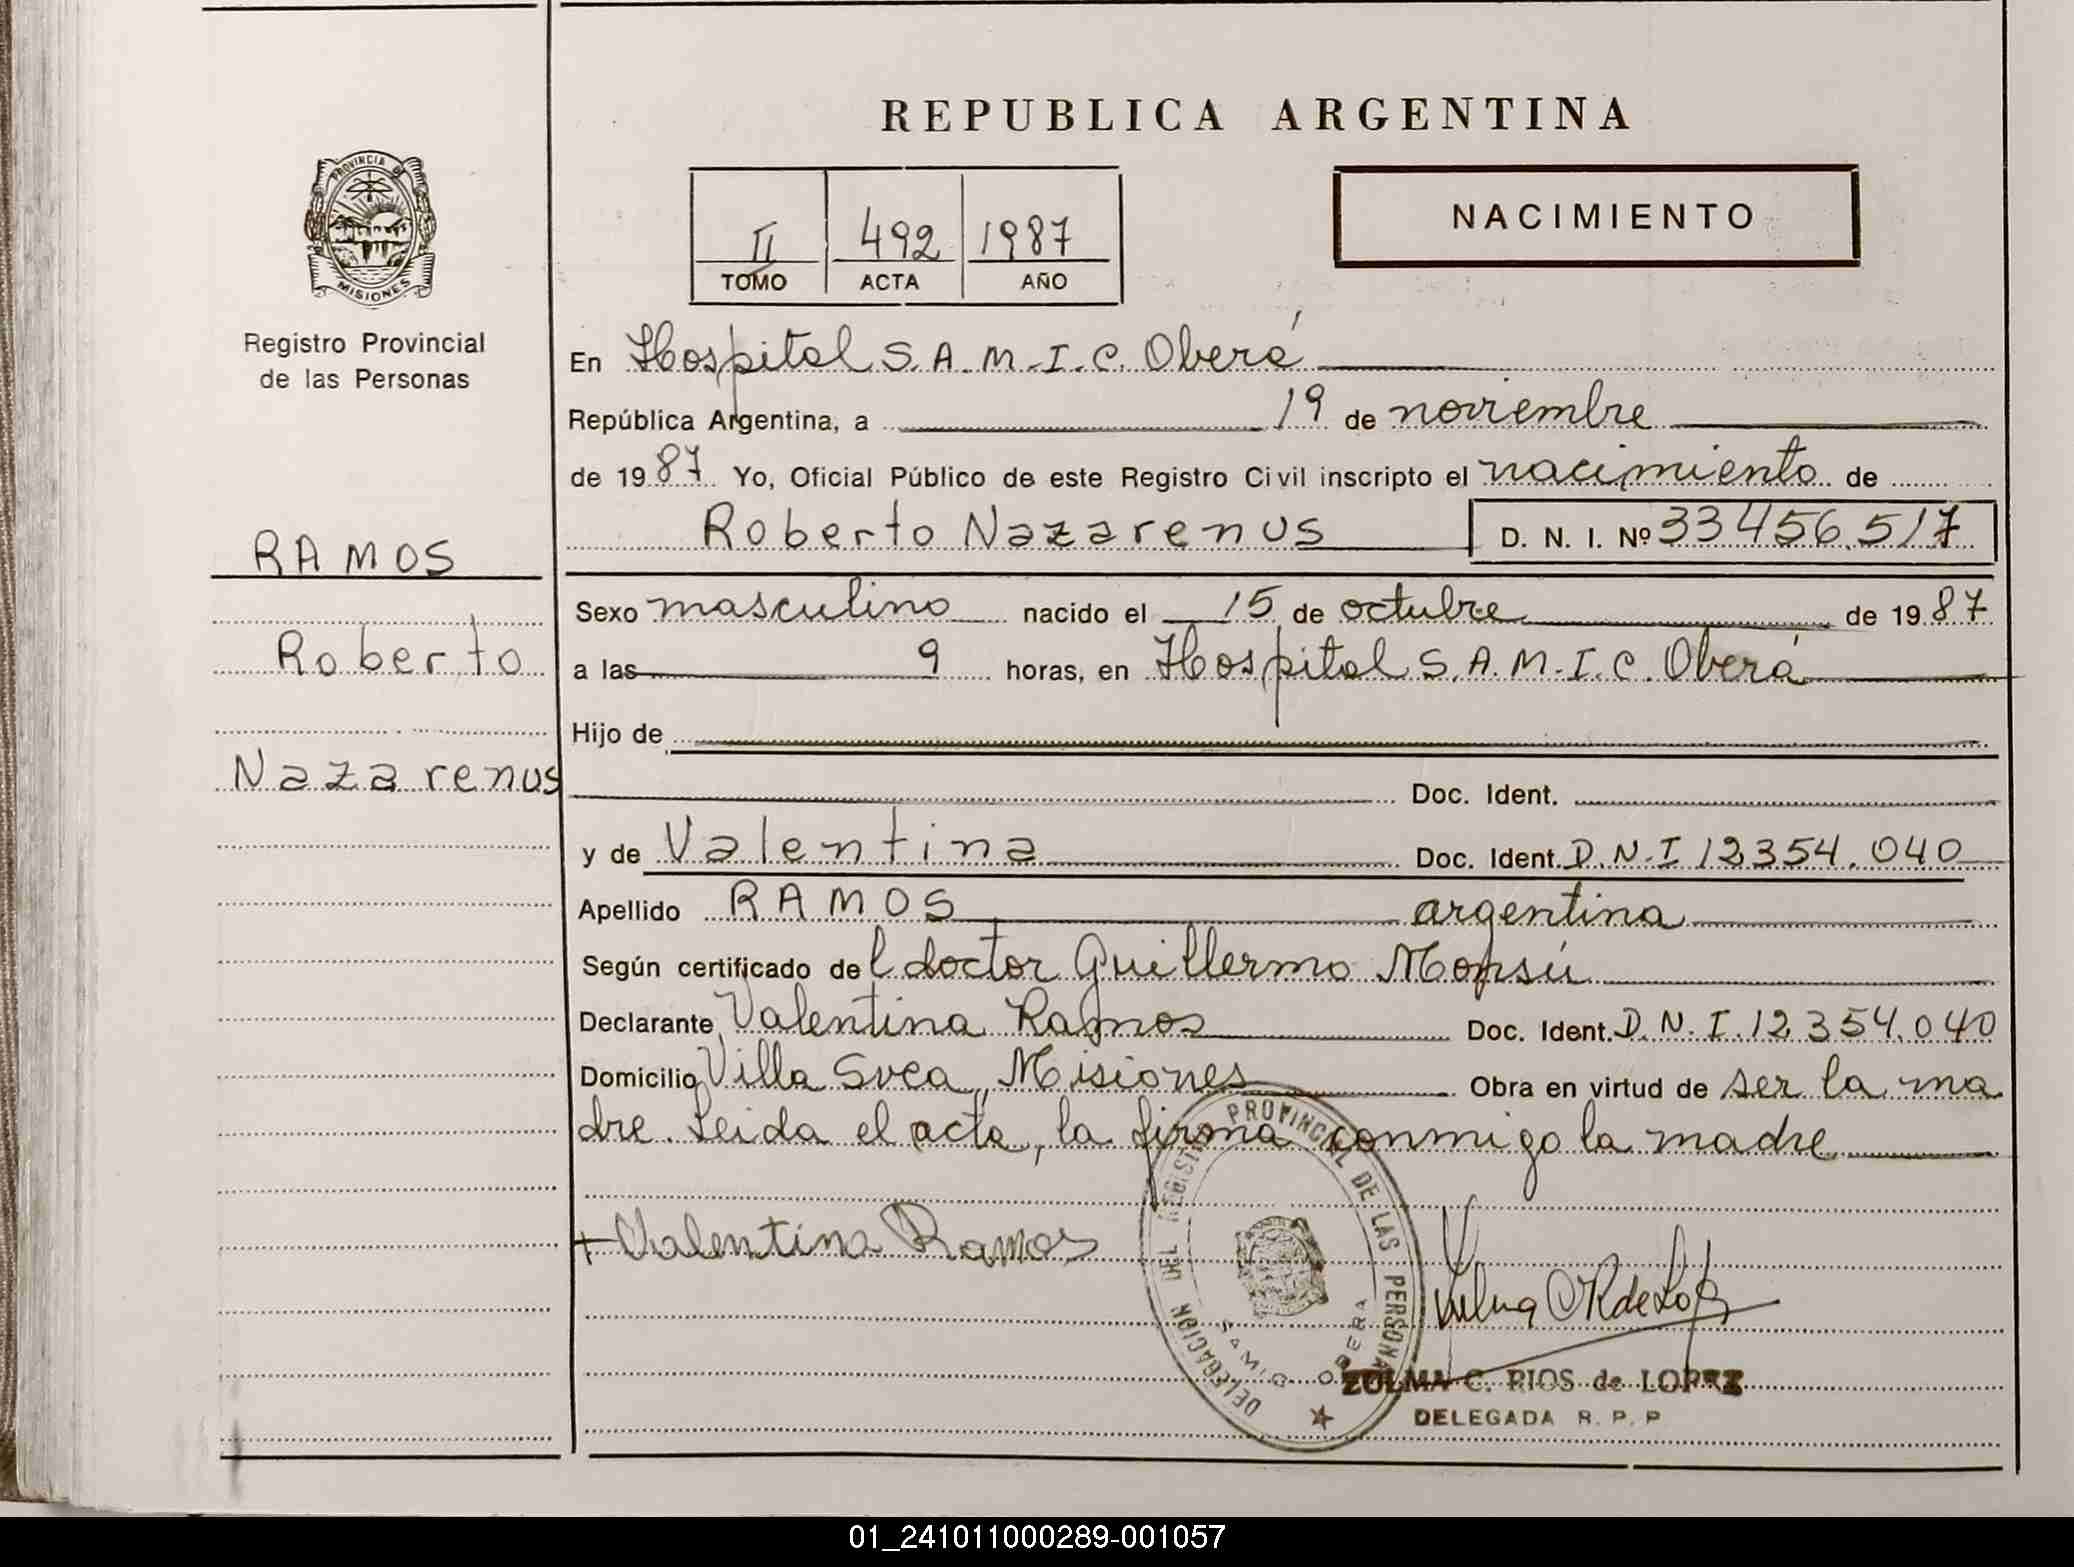 REPUBLICA ARGENTINA
PROVINCIA DE
MISIONES
Registro Provincial
de las Personas
II 492 1987
TOMO ACTA AÑO
NACIMIENTO
RAMOS
Roberto
Nazarenus
En Hospital S.A.M.I.C. Oberá
República Argentina, a 19 de noviembre
de 1987 Yo, Oficial Público de este Registro Civil inscripto el nacimiento de
Roberto Nazarenus D. N. I. Nº 33456.517
Sexo masculino nacido el 15 de octubre de 1987
a las 9 horas, en Hospital S.A.M.I.C. Oberá
Hijo de
Doc. Ident.
y de Valentina Doc. Ident. D.N.I 12354.040
Apellido RAMOS argentina
Según certificado del doctor Guillermo
Declarante Valentina Ramos Doc. Ident. D.N.I. 12354.040
Domicilio Villa Svea, Misiones Obra en virtud de ser la ma
dre. Leida el acta, la firma conmigo la madre
+ Valentina Ramos
DELEGACION DEL REGISTRO PROVINCIAL DE LAS PERSONAS
SAMIC OBERA
ZULMA C. RIOS de LOPEZ
DELEGADA R. P. P
01_241011000289-001057